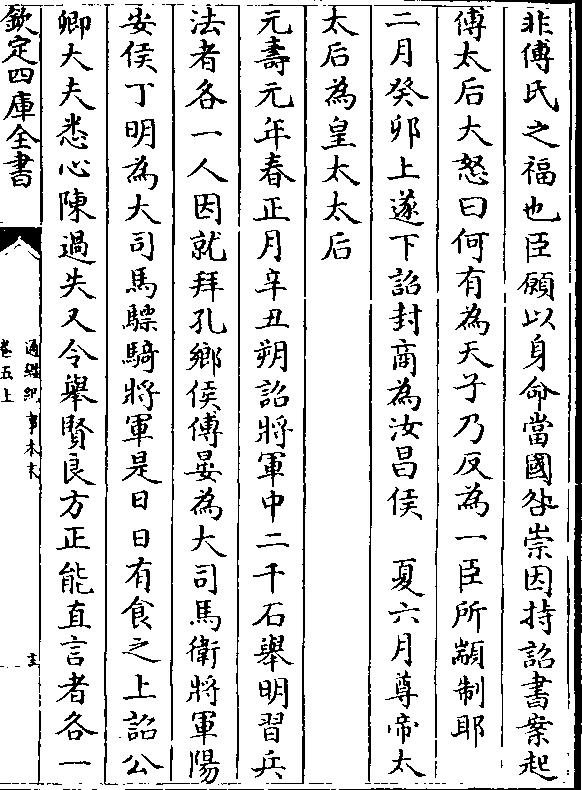 非傅氏之福也臣願以身命當國咎崇因持詔書案起
傅太后大怒曰何有為天子乃反為一臣所顓制耶
二月癸卯上遂下詔封商為汝昌侯　夏六月尊帝太
太后為皇太太后
元壽元年春正月辛丑朔詔將軍中二千石舉明習兵
法者各一人因就拜孔鄉侯傅晏為大司馬衛將軍陽
安侯丁明為大司馬驃騎將軍是日日有食之上詔公
卿大夫悉心陳過失又令舉賢良方正能直言者各一
欽定四庫全書
通鑑紀事本末
卷五上